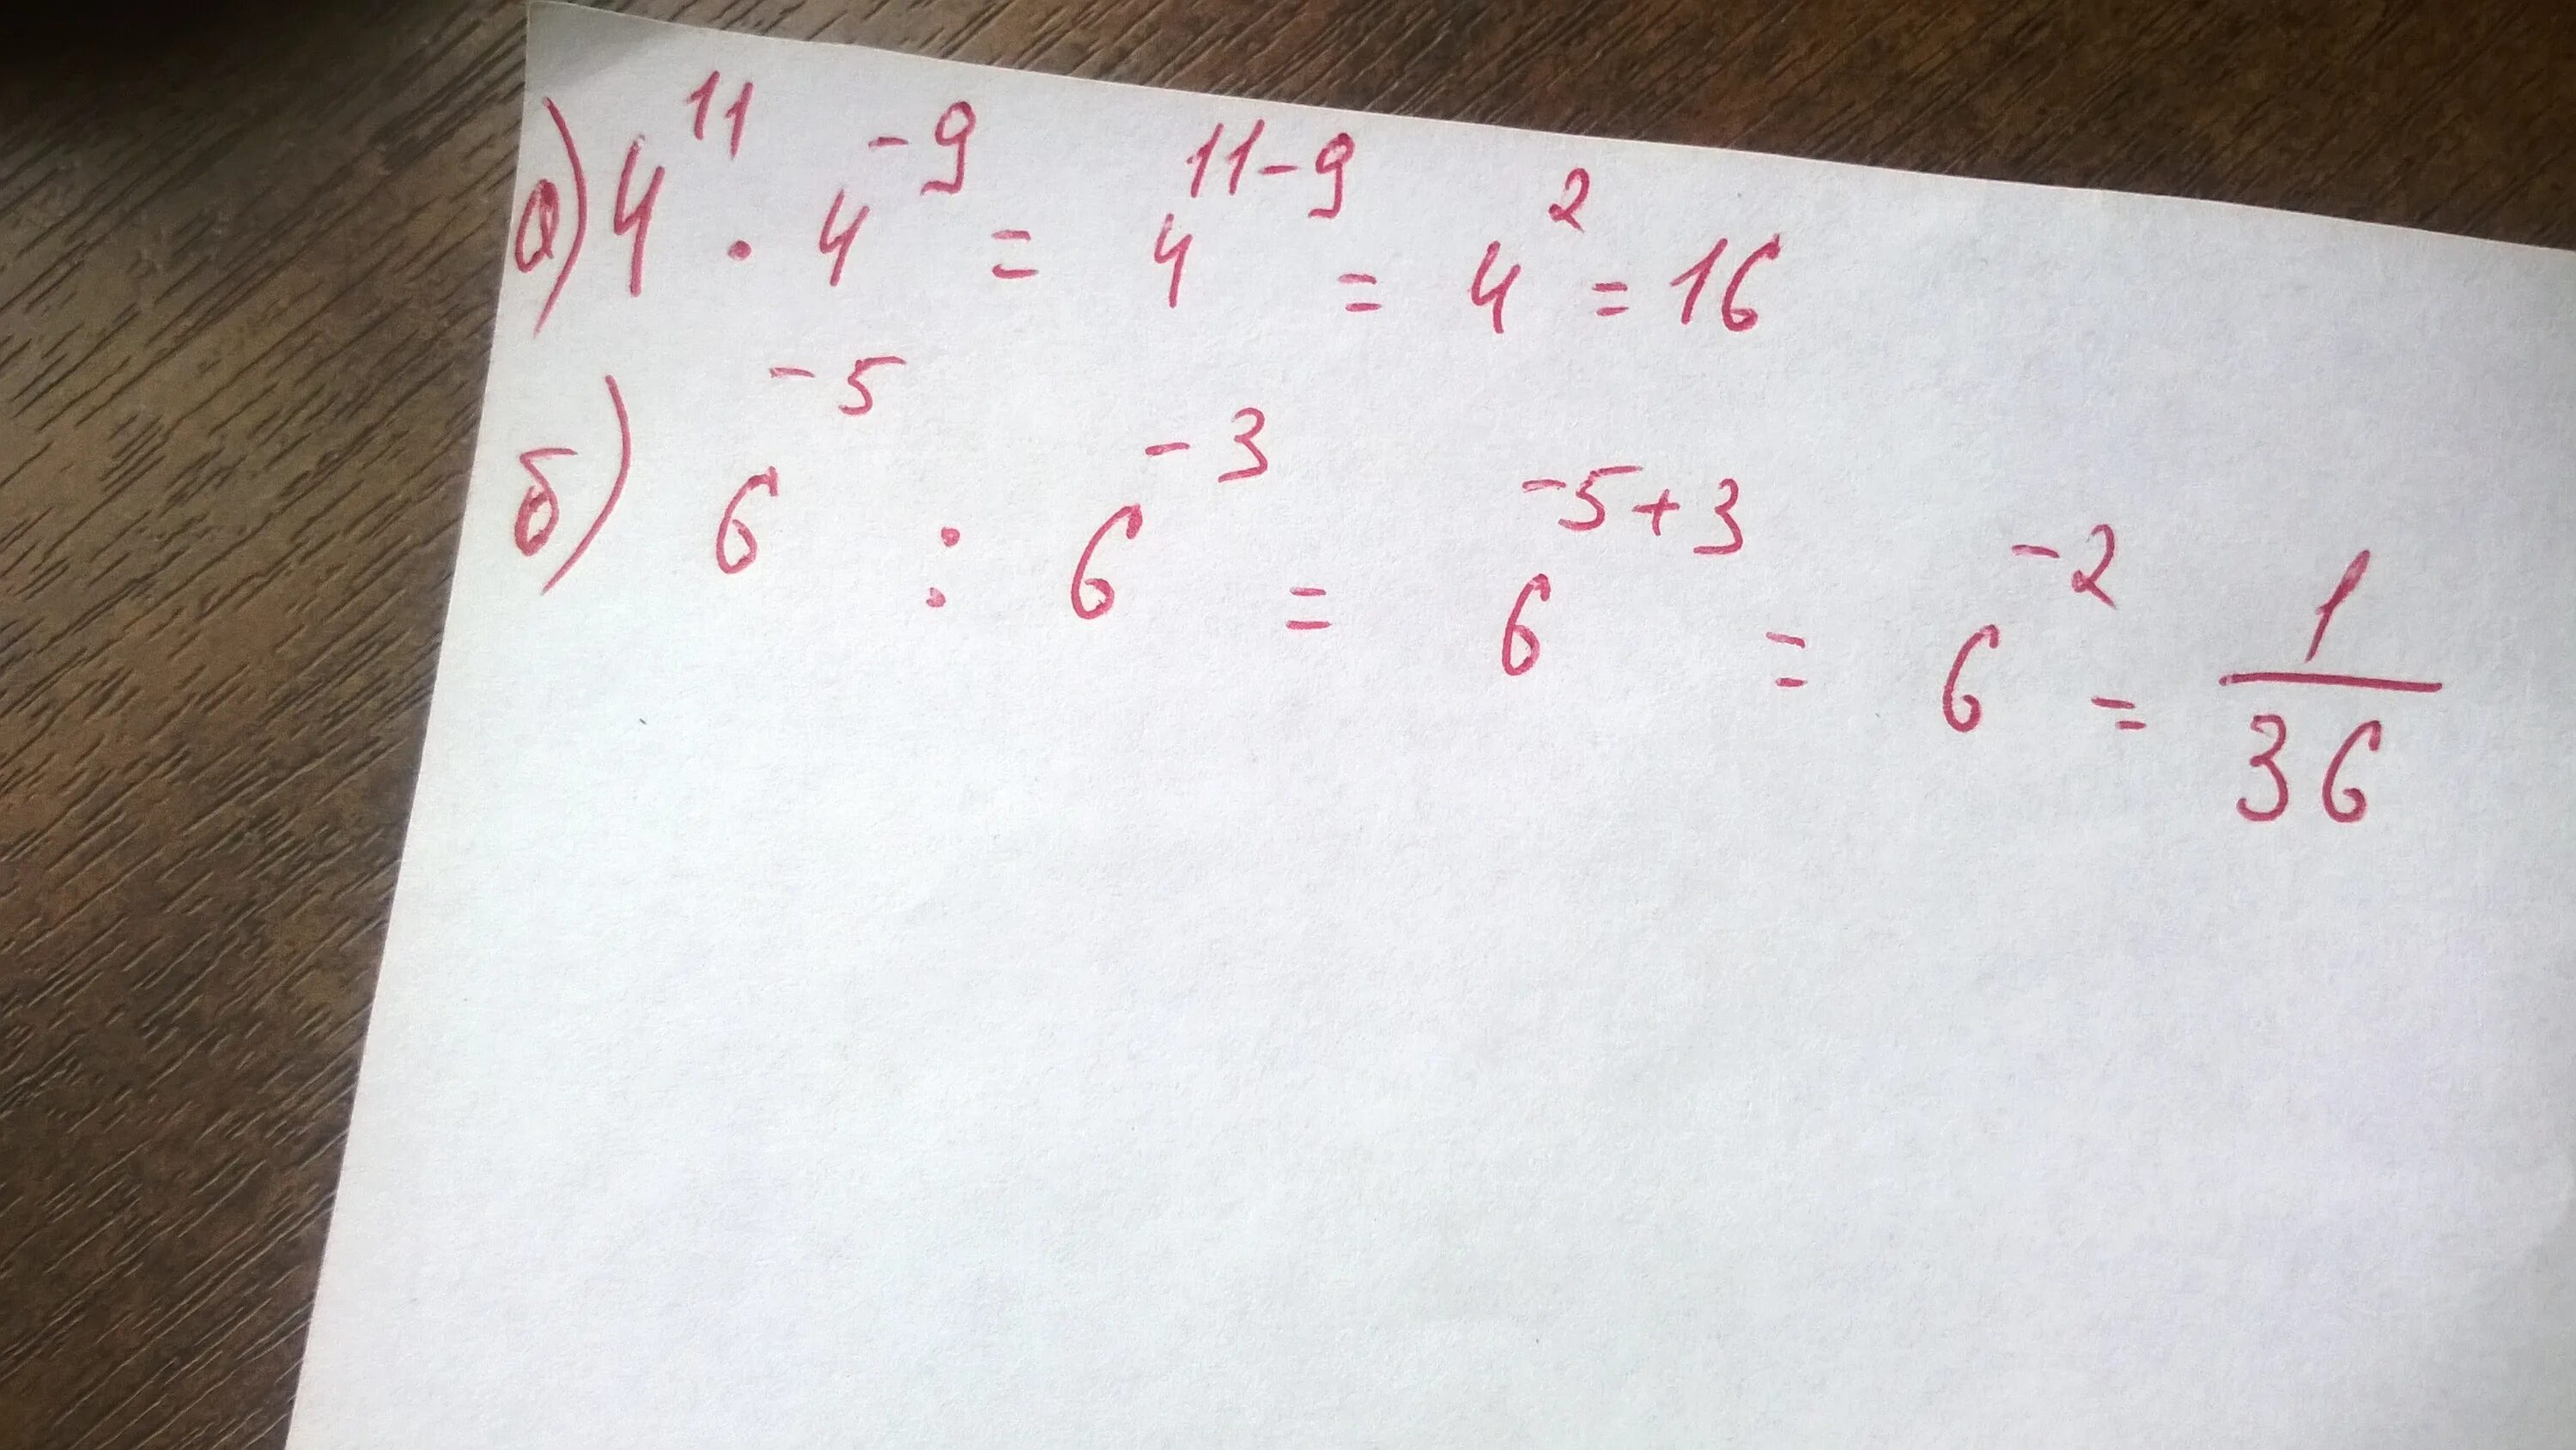 а) 4¹¹ · 4⁻⁹ = 4¹¹⁻⁹ = 4² = 16
б) 6⁻⁵ : 6⁻³ = 6⁻⁵⁺³ = 6⁻² = 1/36